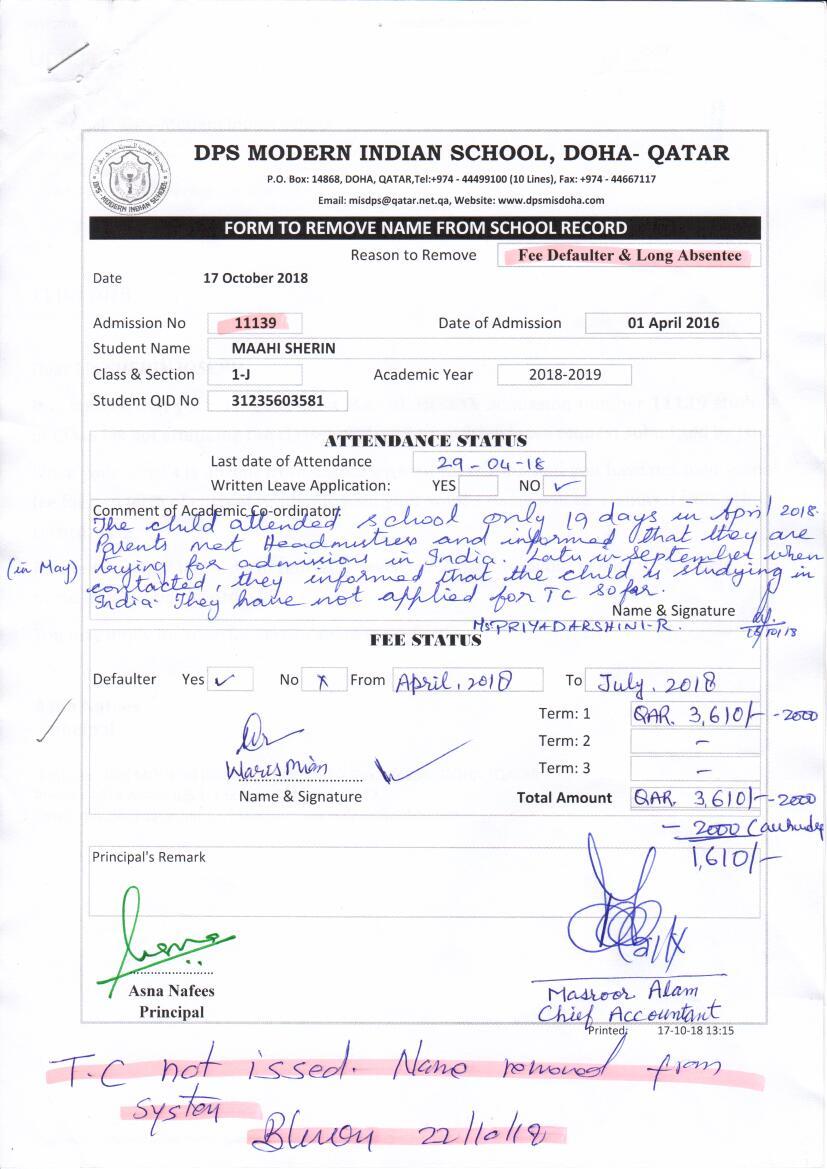 DPS MODERN INDIAN SCHOOL, DOHA- QATAR
P.O. Box: 14868, DOHA, QATAR,Tel:+974 - 44499100 (10 Lines), Fax: +974 - 44667117
Email: misdps@qatar.net.qa, Website: www.dpsmisdoha.com
DPS-MODERN INDIAN SCHOOL
FORM TO REMOVE NAME FROM SCHOOL RECORD
Reason to Remove Fee Defaulter & Long Absentee
Date 17 October 2018
Admission No 11139 Date of Admission 01 April 2016
Student Name MAAHI SHERIN
Class & Section 1-J Academic Year 2018-2019
Student QID No 31235603581
ATTENDANCE STATUS
Last date of Attendance 29-04-18
Written Leave Application: YES NO ✓
Comment of Academic Co-ordinator:
The child attended school only 19 days in April 2018.
Parents met Headmistress and informed that they are
(in May) trying for admissions in India. Later in September when
contacted, they informed that the child is studying in
India. They have not applied for TC so far.
Name & Signature
Ms PRIYADARSHINI-R. 18/10/18
FEE STATUS
Defaulter Yes ✓ No x From April, 2018 To July, 2018
Term: 1 QAR. 3,610/- -2000
Term: 2 -
Waris Mian Term: 3 -
Name & Signature Total Amount QAR. 3,610/- -2000
- 2000
1,610/-
Principal's Remark
Asna Nafees
Principal
Masroor Alam
Chief Accountant
Printed: 17-10-18 13:15
T.C not issed. Name removed from
system
22/10/18